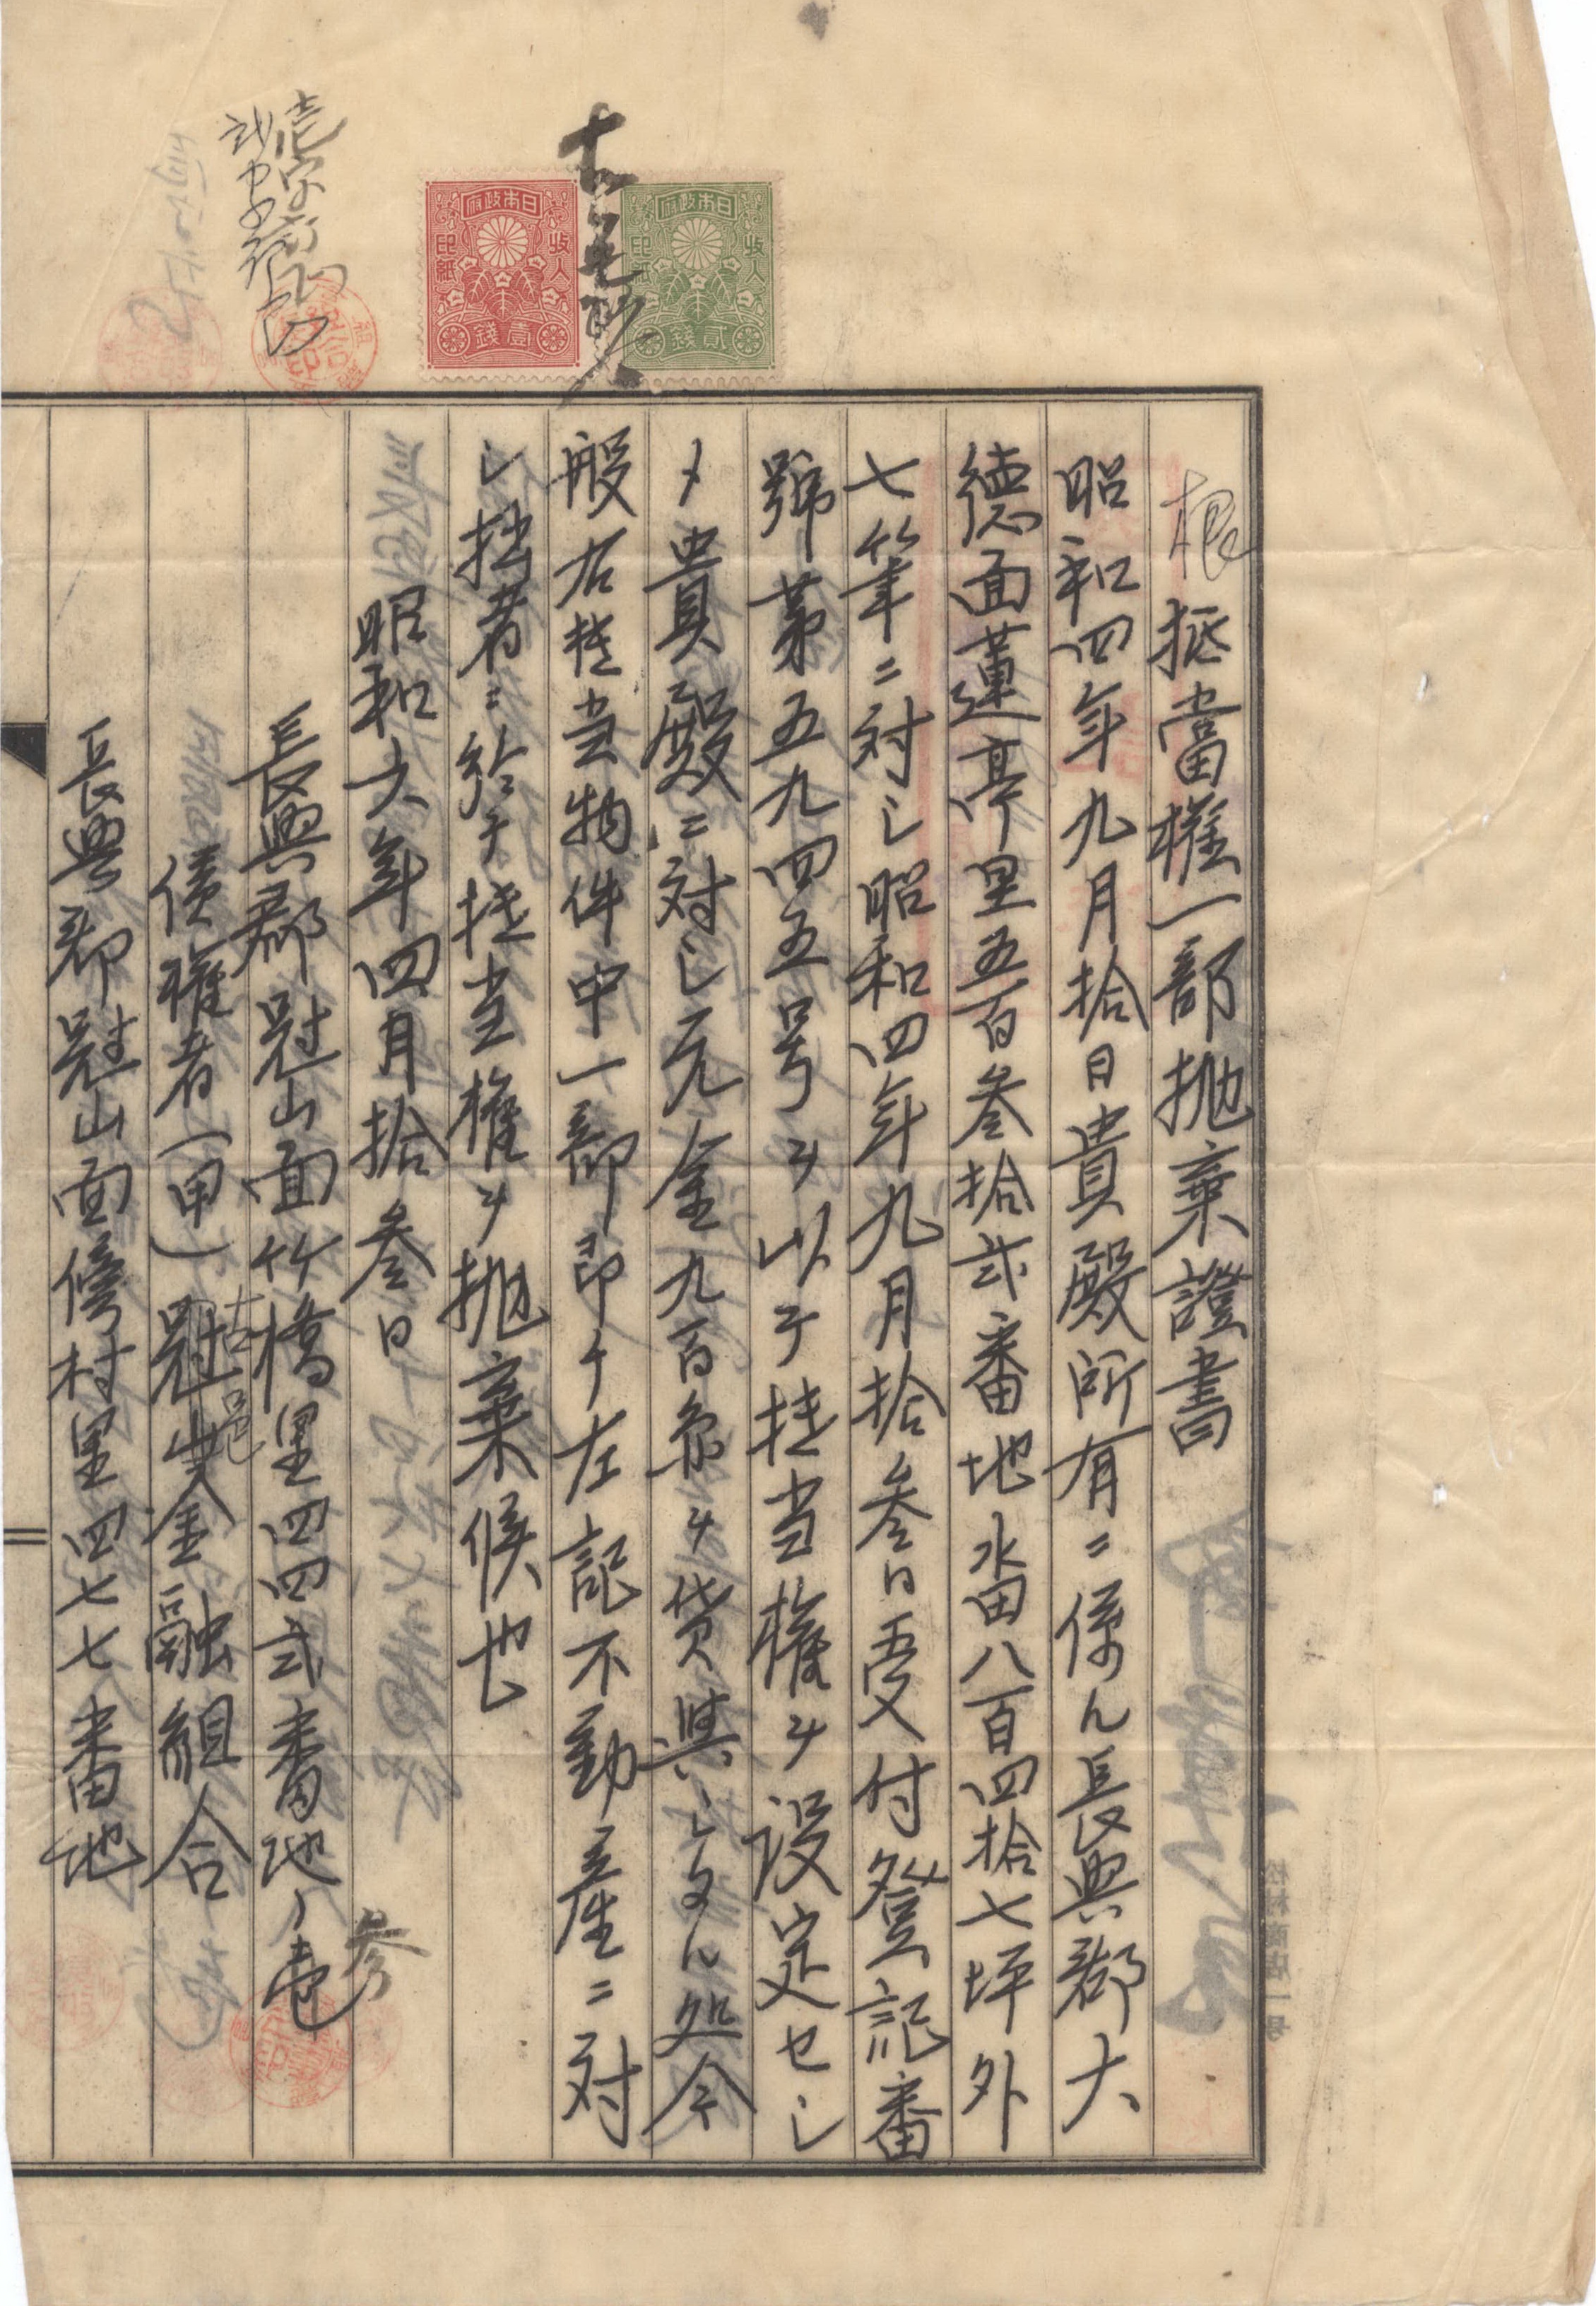 根抵當權一部抛棄證書
昭和四年九月拾日貴殿所有ニ係ル長興郡大
德面蓮亭里五百参拾弍番地畓八百四拾七坪外
七筆ニ対シ昭和四年九月拾参日受付登記番
號第五九四五号ヲ以テ抵当權ヲ設定セシ
メ貴殿ニ対シ元金九百円ヲ貸與シタル処今
般右抵当物件中一部即チ左記不動産ニ対
シ拙者ニ於テ抵当權ヲ抛棄候也
昭和六年四月拾参日
長興郡冠山面竹橋里四四弍番地ノ壱
参
債權者(甲)冠山金融組合
古邑
長興郡冠山面傍村里四七七番地
壱字訂正
日本政府
收入印紙
壹錢
日本政府
收入印紙
貳錢